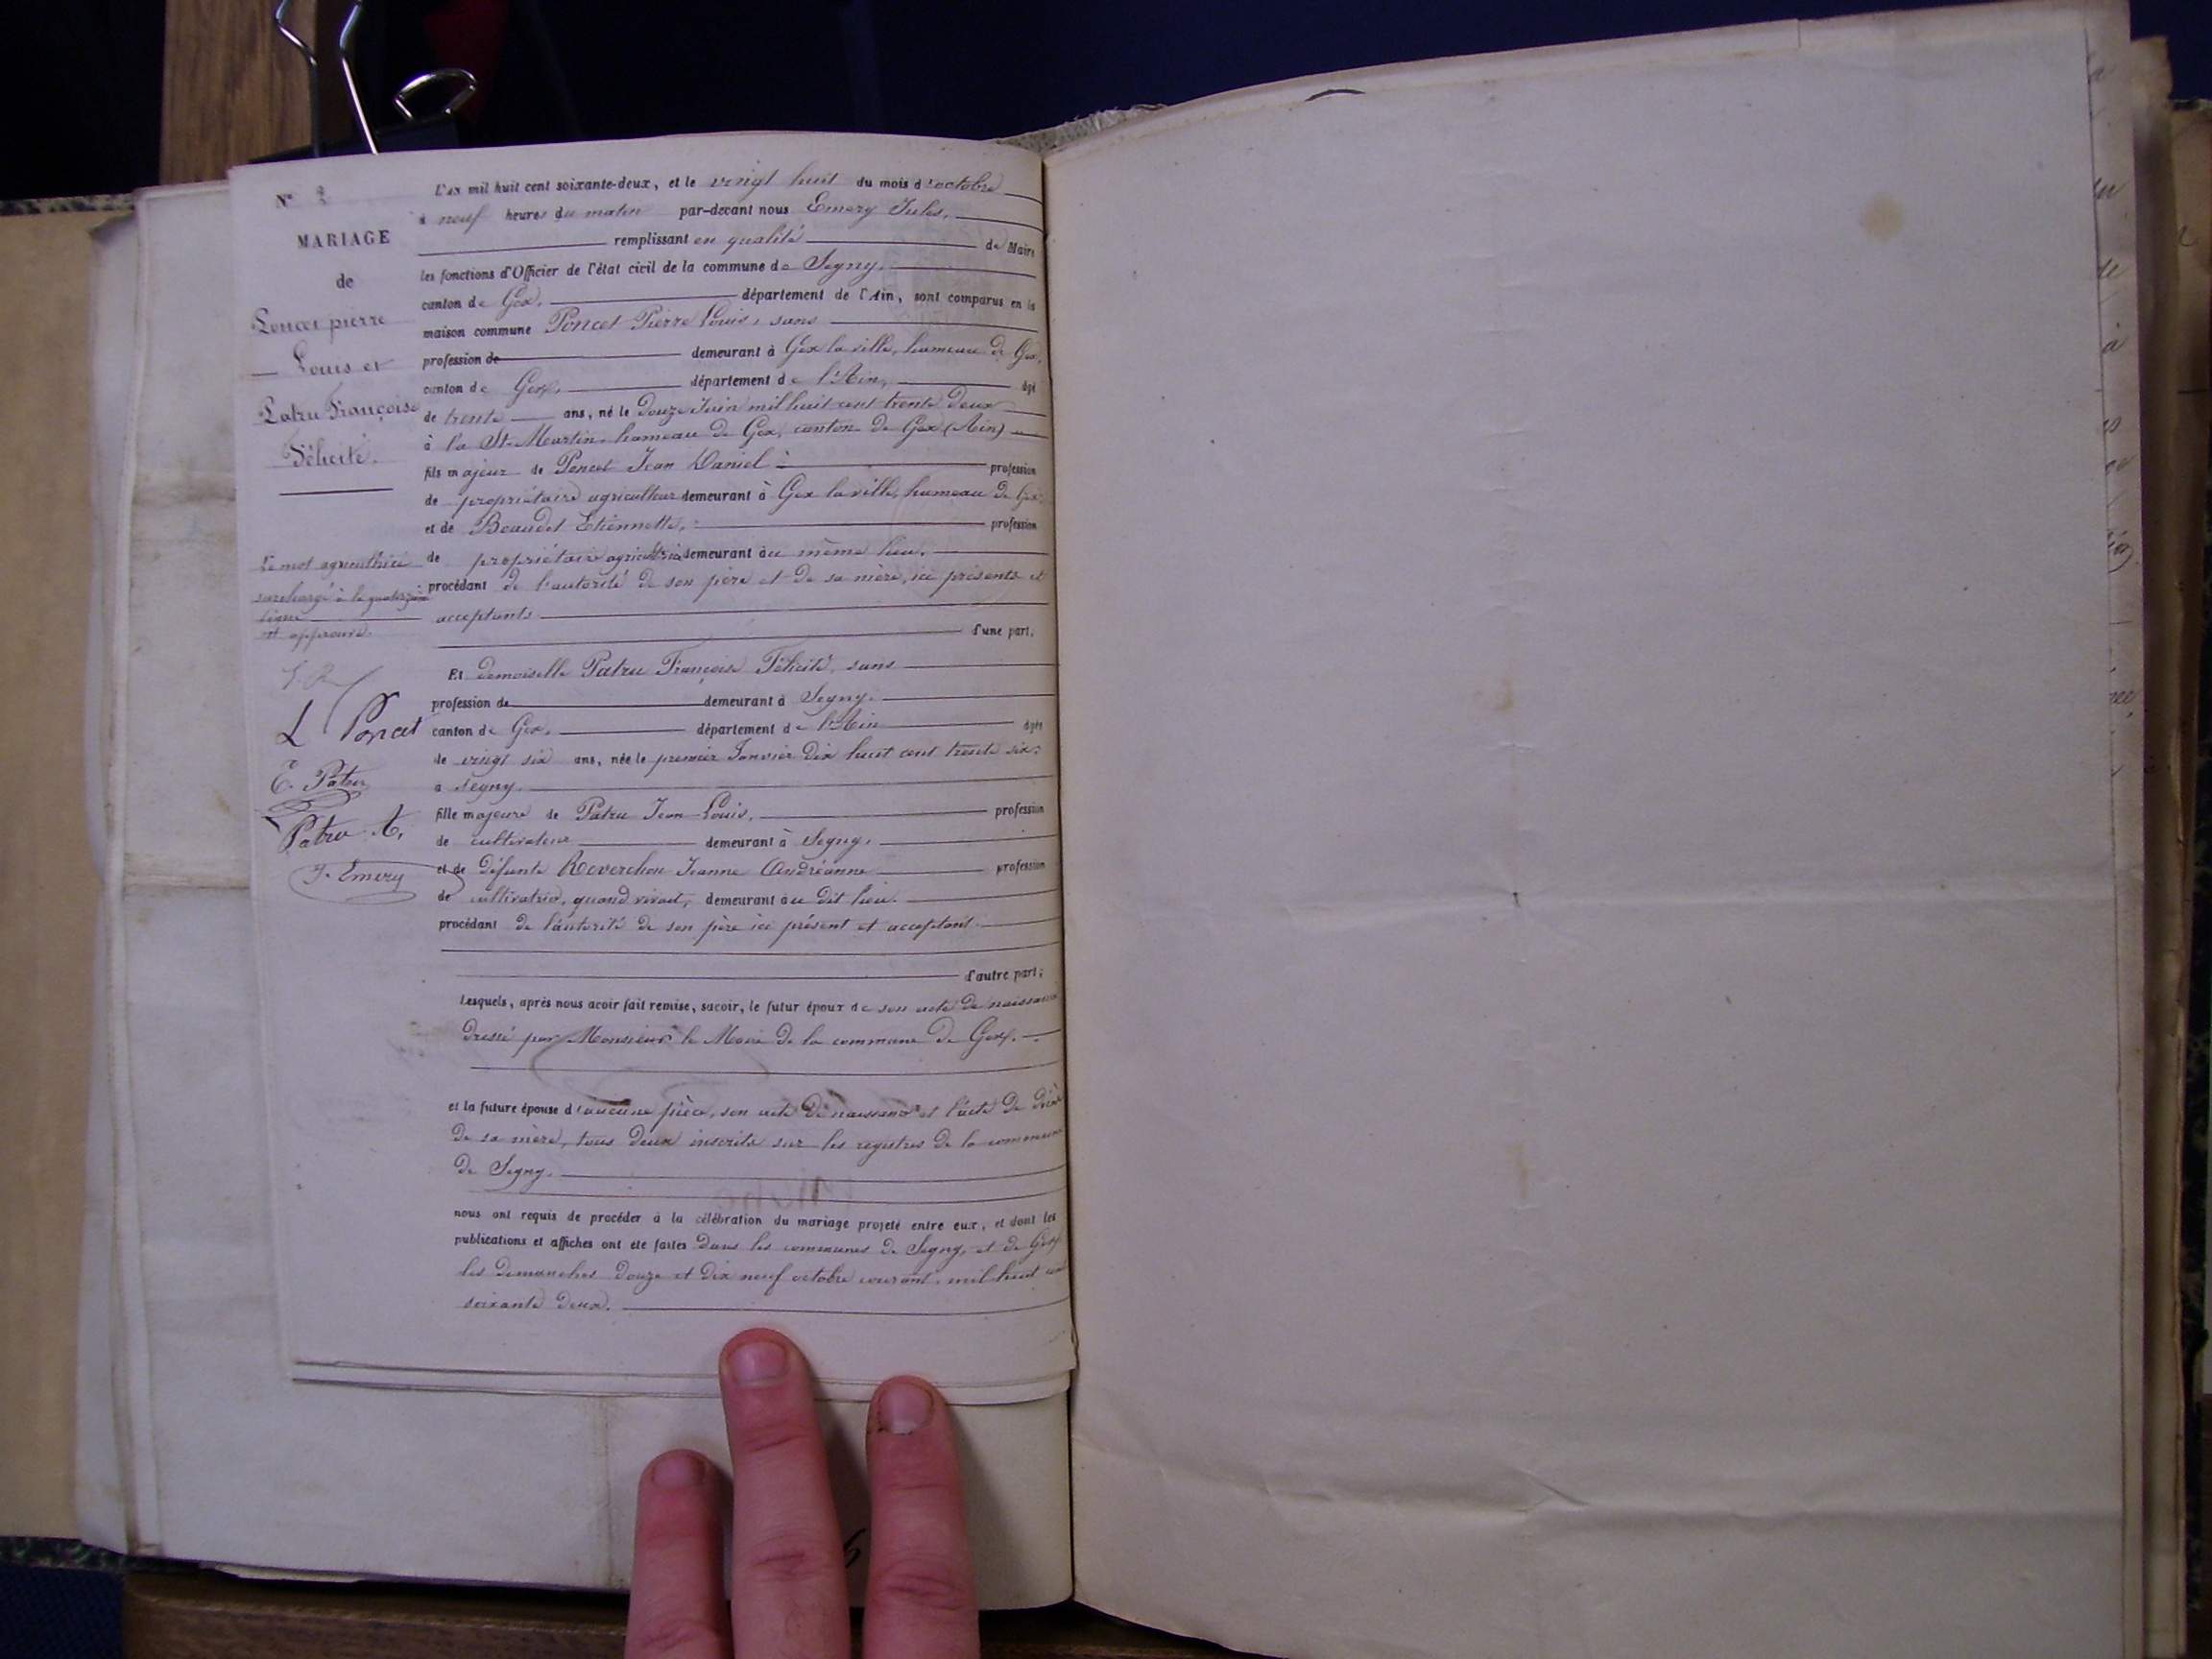 N° 3
MARIAGE
de
Poncet pierre
Louis et
Patru Françoise
Félicité.
Le mot agricultrice
surchargé à la quatorzième
ligne
est approuvé.
L Poncet
E. Patru
Patru A.
J. Emery
L'an mil huit cent soixante-deux, et le vingt huit du mois d'octobre
à neuf heures du matin par-devant nous Emery Jules,
remplissant en qualité de Maire
les fonctions d'Officier de l'état civil de la commune de Segny,
canton de Gex, département de l'Ain, sont comparus en la
maison commune Poncet Pierre Louis, sans
profession de demeurant à Gex la ville, hameau de Gex,
canton de Gex, département de l'Ain, âgé
de trente ans, né le Douze Juin mil huit cent trente Deux
à la St. Martin, hameau de Gex, canton de Gex (Ain)
fils majeur de Poncet Jean Daniel profession
de propriétaire agriculteur demeurant à Gex la ville, hameau de Gex,
et de Beaudet Etiennette, profession
de propriétaire agricultrice demeurant au même lieu.
procédant de l'autorité de son père et de sa mère, ici présents et
acceptants
d'une part,
Et demoiselle Patru Françoise Félicité, sans
profession de demeurant à Segny,
canton de Gex, département de l'Ain âgée
de vingt six ans, née le premier Janvier Dix huit cent trente six
à Segny,
fille majeure de Patru Jean-Louis, profession
de cultivateur demeurant à Segny,
et de défunte Reverchon Jeanne Andréanne profession
de cultivatrice, quand vivait, demeurant au dit lieu.
procédant de l'autorité de son père ici présent et acceptant
d'autre part;
Lesquels, après nous avoir fait remise, savoir, le futur époux de son acte de naissance
Dressé par Monsieur le Maire de la commune de Gex.
et la future épouse d'aucune pièce, son acte de naissance et l'acte de décès
de sa mère, tous deux inscrits sur les registres de la commune
de Segny.
nous ont requis de procéder à la célébration du mariage projeté entre eux, et dont les
publications et affiches ont été faites dans les communes de Segny, et de Gex
les dimanches douze et dix neuf octobre courant, mil huit cent
soixante deux.